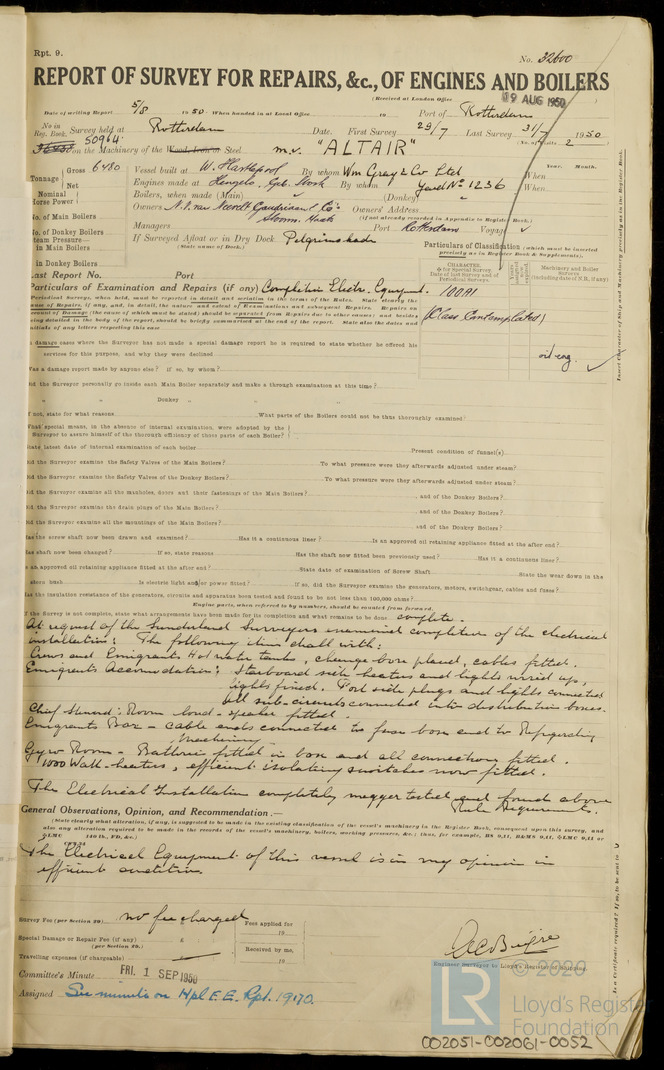 Rpt. 9.
No. 32600
REPORT OF SURVEY FOR REPAIRS, &c., OF ENGINES AND BOILERS
(Received at London Office 9 AUG 1950
Date of writing Report 5/8 1950 When handed in at Local Office 19 Port of Rotterdam
No in Reg. Book. Survey held at Rotterdam Date. First Survey 29/7 Last Survey 31/7 1950
50964 on the Machinery of the Wood, Iron or Steel m.v. "ALTAIR" (No. of Visits 2)
Tonnage Gross 6480
Net
Vessel built at W. Hartlepool By whom Wm Gray & Co Ltd When
Year. Month.
Nominal Horse Power
Engines made at Hengelo, Gebr. Stork By whom Yard No 1236 When
Boilers, when made (Main) (Donkey)
No. of Main Boilers
Owners Owners' Address
(if not already recorded in Appendix to Register Book.)
No. of Donkey Boilers
Managers Port Rotterdam Voyage
Steam Pressure—
in Main Boilers
If Surveyed Afloat or in Dry Dock
(State name of Dock.)
in Donkey Boilers
Particulars of Classification (which must be inserted precisely as in Register Book & Supplements).
Last Report No. Port
Particulars of Examination and Repairs (if any) Completion Electr. Equipment.
100A1
(Class Contemplated)
oil eng.
In damage cases where the Surveyor has not made a special damage report he is required to state whether he offered his
services for this purpose, and why they were declined
Was a damage report made by anyone else? if so, by whom?
Did the Surveyor personally go inside each Main Boiler separately and make a thorough examination at this time?
" " Donkey " " "
If not, state for what reasons What parts of the Boilers could not be thus thoroughly examined?
What special means, in the absence of internal examination, were adopted by the
Surveyor to assure himself of the thorough efficiency of those parts of each Boiler?
State latest date of internal examination of each boiler Present condition of funnel(s).
Did the Surveyor examine the Safety Valves of the Main Boilers? To what pressure were they afterwards adjusted under steam?
Did the Surveyor examine the Safety Valves of the Donkey Boilers? To what pressure were they afterwards adjusted under steam?
Did the Surveyor examine all the manholes, doors and their fastenings of the Main Boilers? , and of the Donkey Boilers?
Did the Surveyor examine the drain plugs of the Main Boilers? , and of the Donkey Boilers?
Did the Surveyor examine all the mountings of the Main Boilers? , and of the Donkey Boilers?
Has the screw shaft now been drawn and examined? Has it a continuous liner? Is an approved oil retaining appliance fitted at the after end?
Has shaft now been changed? If so, state reasons Has the shaft now fitted been previously used? Has it a continuous liner?
Is an approved oil retaining appliance fitted at the after end? State date of examination of Screw Shaft State the wear down in the
stern bush Is electric light and/or power fitted? If so, did the Surveyor examine the generators, motors, switchgear, cables and fuses?
Has the insulation resistance of the generators, circuits and apparatus been tested and found to be not less than 100,000 ohms?
Engine parts, when referred to by numbers, should be counted from forward.
If the Survey is not complete, state what arrangements have been made for its completion and what remains to be done complete.
At request of the Sunderland Surveyors examined completion of the electrical
installation: The following items dealt with:
Crews and Emigrants Hot water tanks, change box placed, cables fitted.
Emigrants Accomodation: Starboard side heaters and lights wired up,
lights fixed. Port side plugs and lights connected
All sub-circuits connected into distribution boxes.
Chief Steward: Room loud-speaker fitted.
Emigrants Box - cable ends connected to fuse box and to Refrigerating
Machinery
Gyro Room - Batteries fitted in box and all connections fitted.
1000 Watt-heaters, efficient isolating switches now fitted.
The Electrical Installation completely megger tested and found above
Rule Requirements.
General Observations, Opinion, and Recommendation.—
(State clearly what alteration, if any, is suggested to be made in the existing classification of the vessel's machinery in the Register Book, consequent upon this survey, and
also any alteration required to be made in the records of the vessel's machinery, boilers, working pressures, &c.; thus, for example, BS 9,11, B&MS 9,11, LMC 9,11 or
LMC 140 lb., FD, &c.)
The Electrical Equipment of this vessel is in my opinion in
efficient condition.
Survey Fee (per Section 29) no fee charged Fees applied for
Special Damage or Repair Fee (if any) £ 19
(per Section 29.)
Received by me,
Travelling expenses (if chargeable) £ 19
Engineer Surveyor to Lloyd's Register of Shipping.
Committee's Minute FRI. 1 SEP 1950
Assigned See minute on Hpl F.E. Rpt. 19170.
© 2020
LR
Lloyd's Register
Foundation
002051-002061-0052